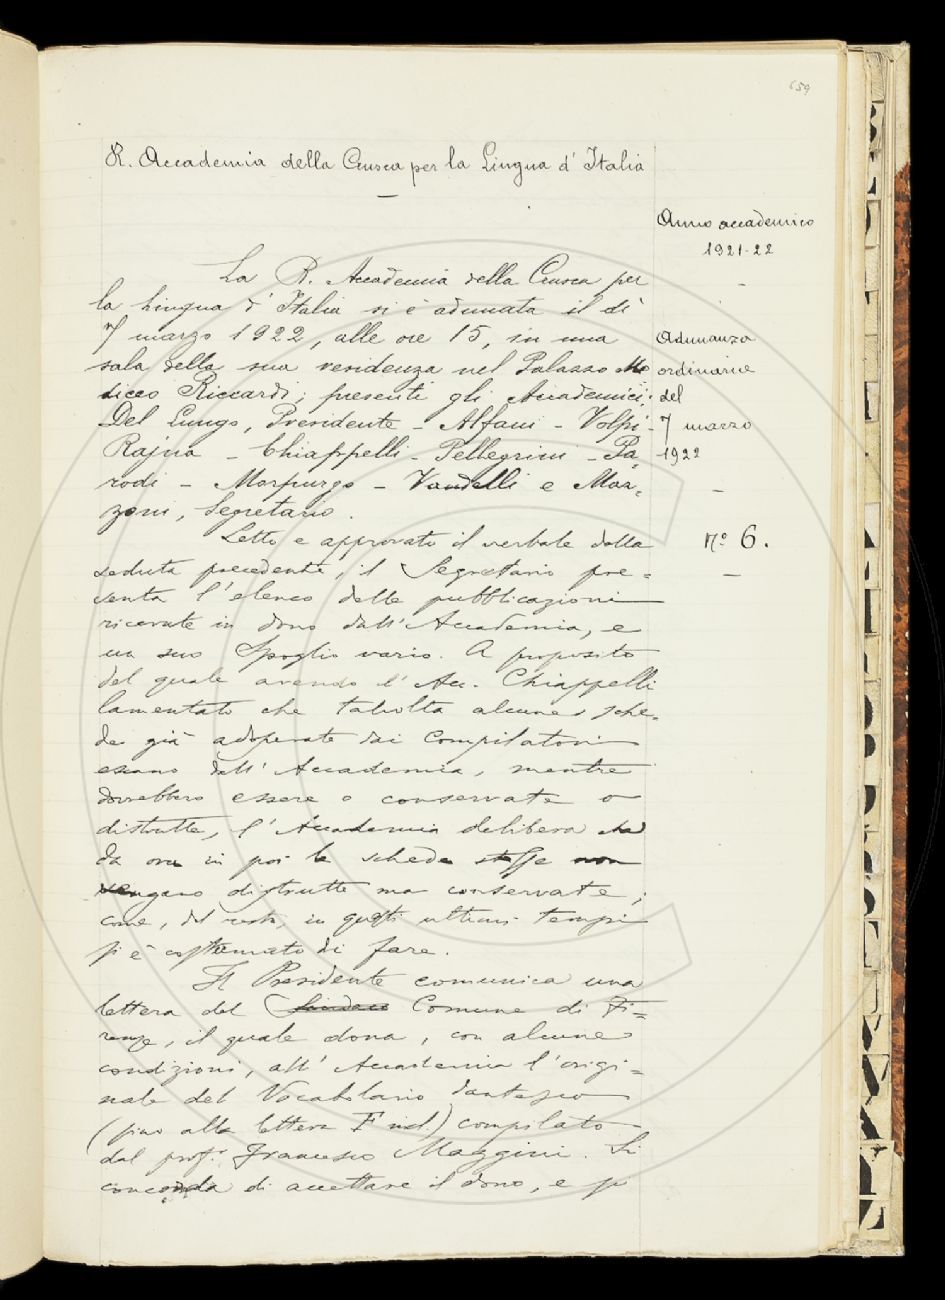 659
R. Accademia della Crusca per la Lingua d'Italia
Anno accademico
1921-22
Adunanza
ordinaria
del
7 marzo
1922
N.° 6.
La R. Accademia della Crusca per
la Lingua d'Italia si è adunata il dì
7 marzo 1922, alle ore 15, in una
sala della sua residenza nel Palazzo Me
diceo Riccardi; presenti gli Accademici:
Del Lungo, Presidente - Alfani - Volpi -
Rajna - Chiappelli - Pellegrini - Pa=
rodi - Morpurgo - Vandelli e Maz=
zoni, Segretario.
Letto e approvato il verbale della
seduta precedente, il Segretario pre=
senta l'elenco delle pubblicazioni
ricevute in dono dall'Accademia, e
un suo Spoglio vario. A proposito
del quale avendo l'Acc. Chiappelli
lamentato che talvolta alcune sche=
de già adoperate dai Compilatori
escano dall'Accademia, mentre
dovrebbero essere o conservate o
distrutte, l'Accademia delibera che
da ora in poi le schede stesse non
vengano distrutte ma conservate;
come, del resto, in questi ultimi tempi
si è costumato di fare.
Il Presidente comunica una
lettera del Sindaco Comune di Fi=
renze, il quale dona, con alcune
condizioni, all'Accademia l'origi=
nale del Vocabolario dantesco
(fino alla lettera F incl.) compilato
dal prof. Francesco Maggini. Si
concorda di accettare il dono, e si